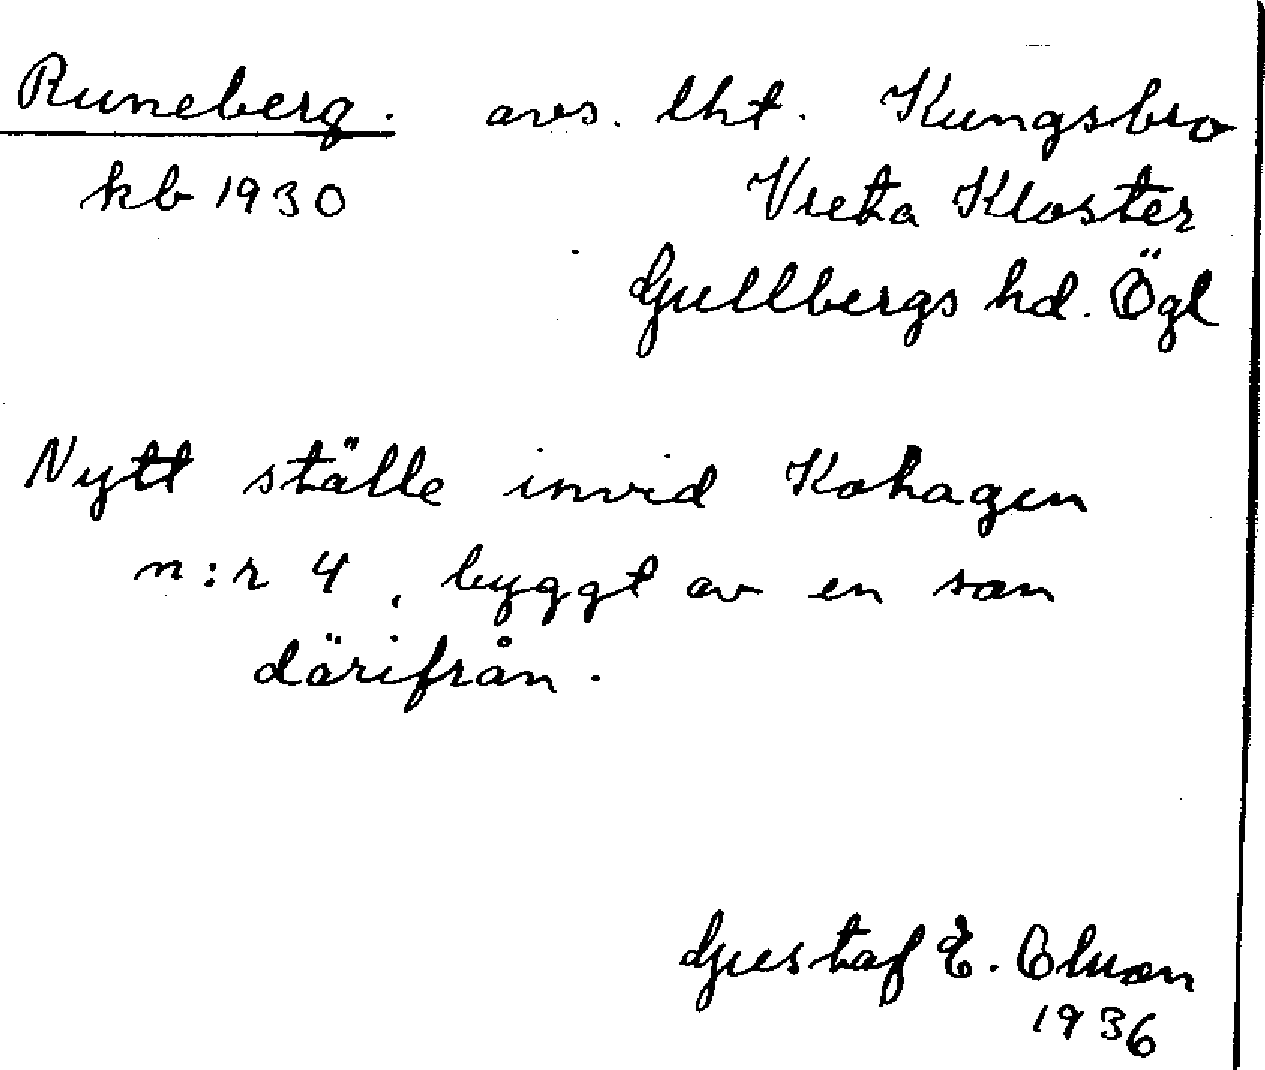 Runeberg. avs. lht. Kungsbro
kb 1930 Vreta Kloster
Gullbergs hd. Ögl
Nytt ställe invid Kohagen
n:r 4, byggt av en son
därifrån.
Gustaf E. Olson
1936